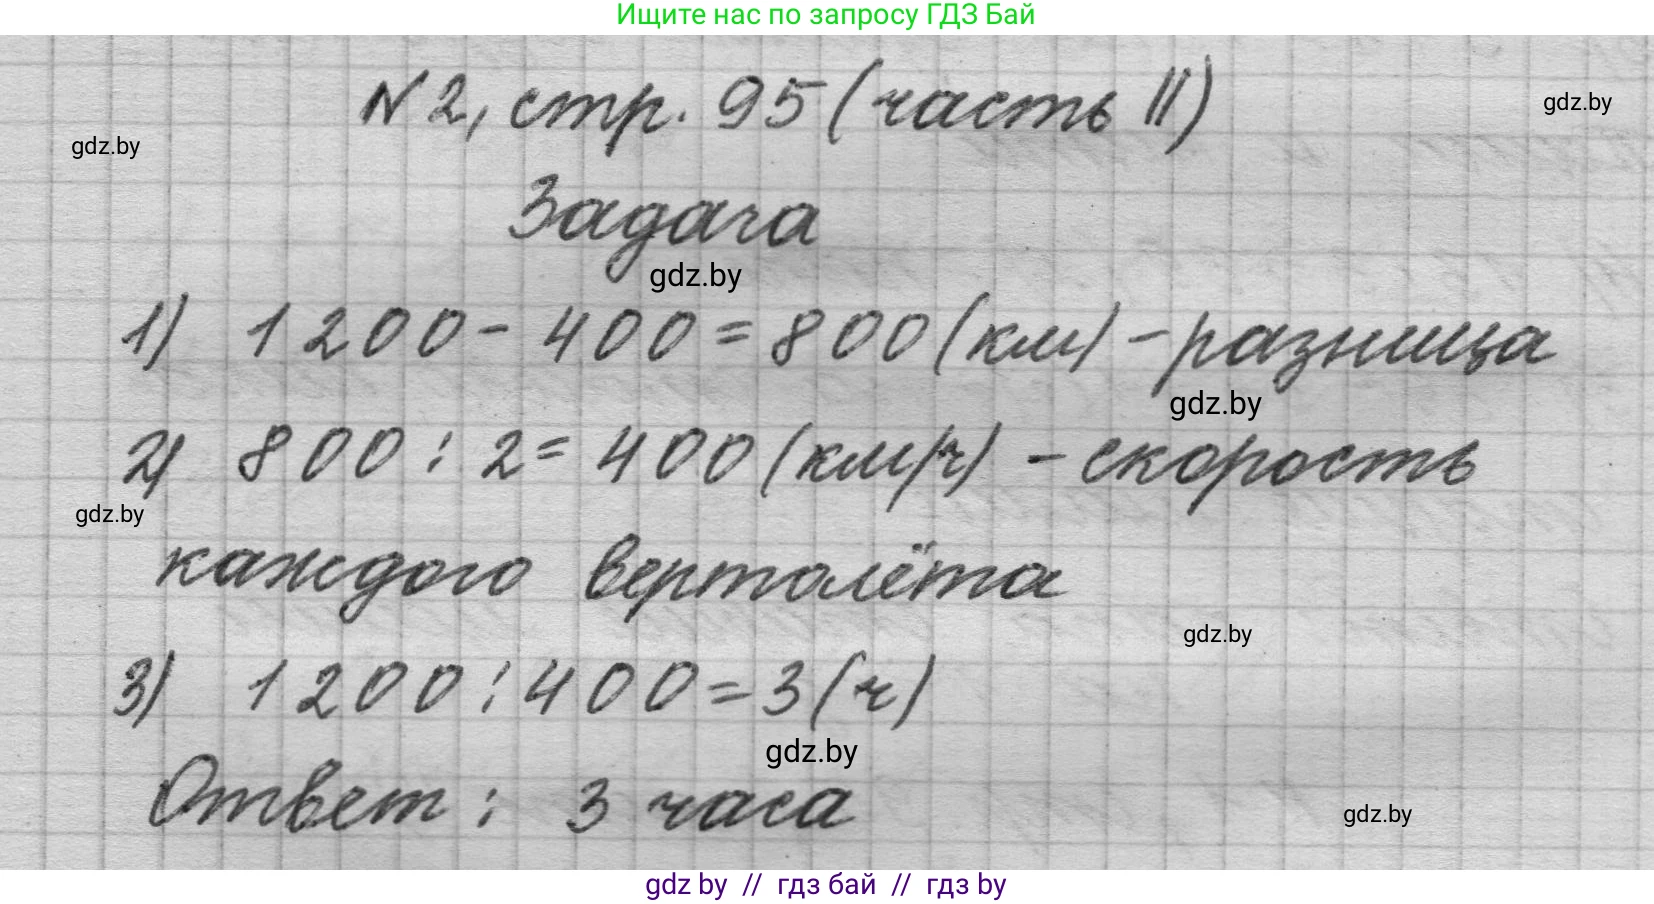 Ищите нас по запросу ГДЗ Бай
N2, стр. 95 (часть II)
gdz.by
gdz.by
Задача
gdz.by
1) 1200 - 400 = 800 (км) - разница
gdz.by
2) 800 : 2 = 400 (км/ч) - скорость
gdz.by
каждого вертолёта
gdz.by
3) 1200 : 400 = 3 (ч)
gdz.by
Ответ : 3 часа
gdz.by
gdz by // гдз бай // гдз by